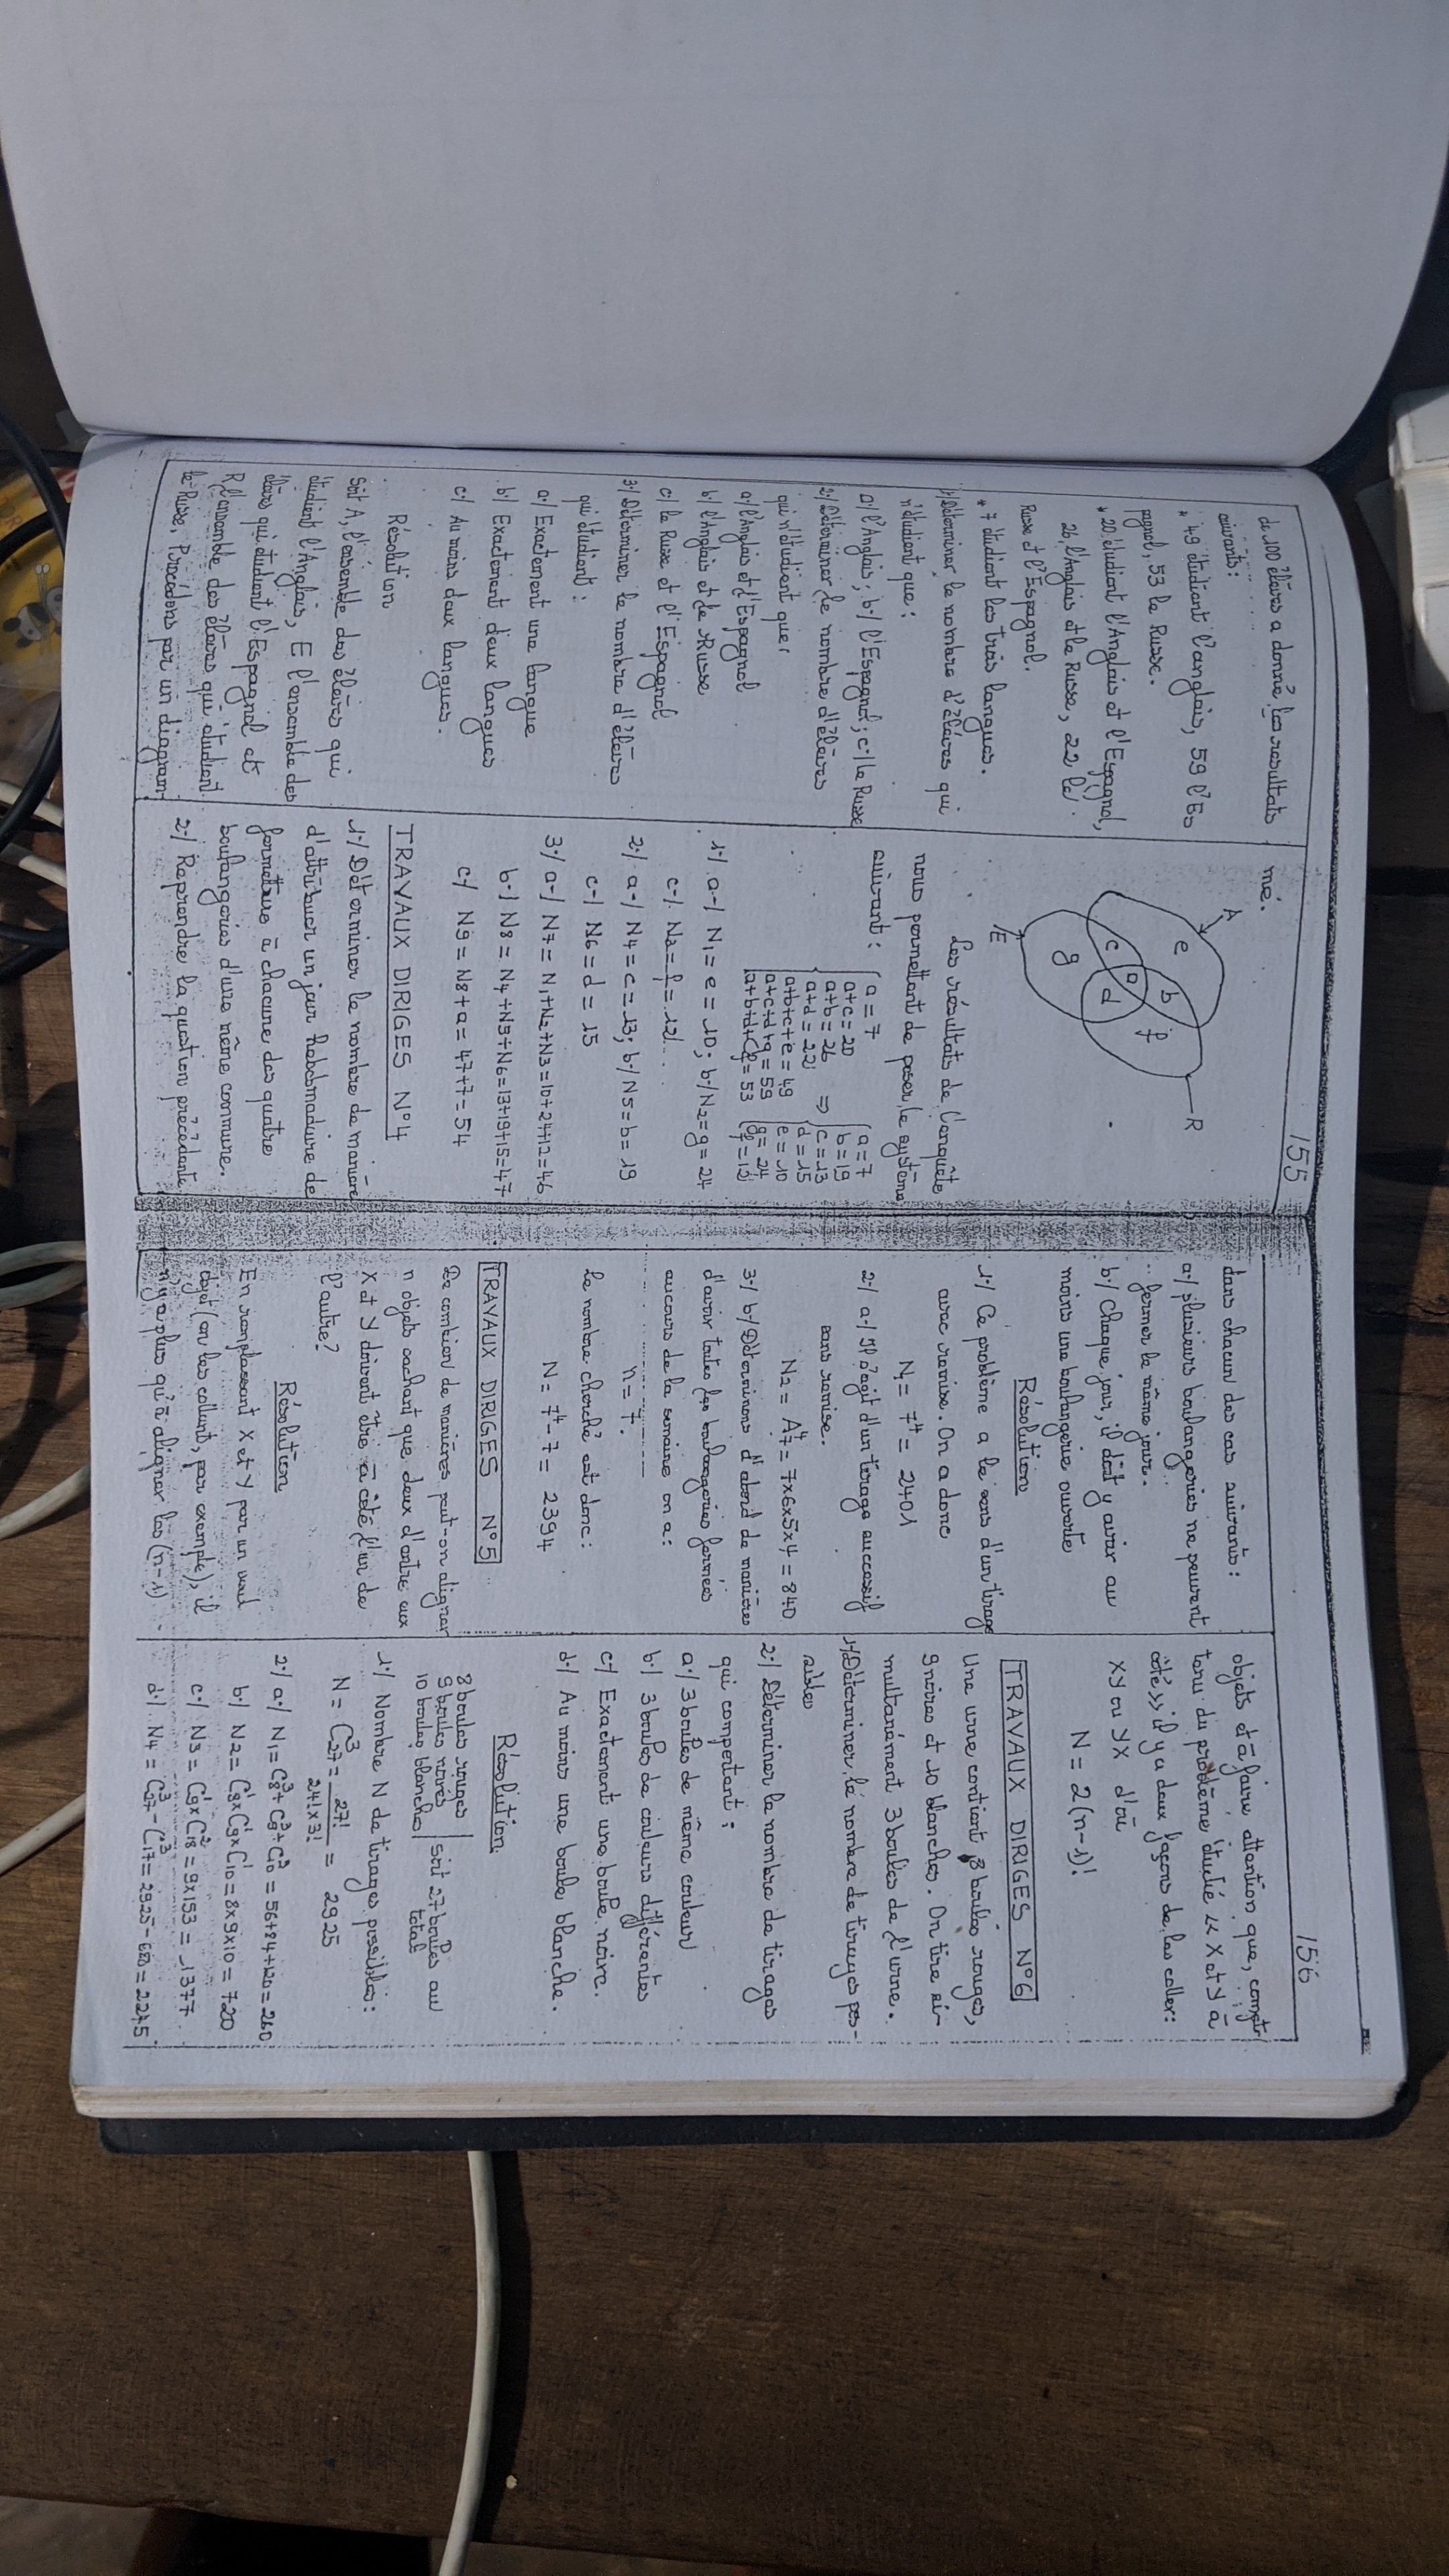 155
de 100 élèves a donné les resultats
suivants:
* 49 étudient l'anglais, 59 l'Es
pagnol, 53 le Russe.
* 20 étudient l'Anglais et l'Espagnol,
26 l'Anglais et le Russe, 22 le
Russe et l'Espagnol.
* 7 étudient les trois langues.
1°/ Déterminer le nombre d'élèves qui
n'étudient que:
a/ l'Anglais; b-/ l'Espagnol; c-/ le Russe
2°/ Déterminer le nombre d'élèves
qui n'étudient que:
a-/ l'Anglais et l'Espagnol
b-/ l'Anglais et le Russe
c/ le Russe et l'Espagnol
3°/ Déterminer le nombre d'élèves
qui étudient:
a-/ Exactement une langue
b-/ Exactement deux langues
c-/ Au moins deux langues.
Résolution
Soit A, l'ensemble des élèves qui
étudient l'Anglais, E l'ensemble des
élèves qui étudient l'Espagnol et
R l'ensemble des élèves qui étudient
le Russe, Procédons par un diagram-
me.
A
R
E
e
b
f
a
c
d
g
Les résultats de l'enquête
nous permettent de poser le système
suivant:
a = 7
a+c = 20
a+b = 26
a+d = 22
a+b+c+e = 49
a+c+d+g = 59
a+b+d+f = 53
⇒
a = 7
b = 19
c = 13
d = 15
e = 10
g = 24
f = 12
1°/ a-/ N1 = e = 10; b-/ N2 = g = 24
c-/ N3 = f = 12
2°/ a-/ N4 = c = 13; b-/ N5 = b = 19
c-/ N6 = d = 15
3°/ a-/ N7 = N1+N2+N3 = 10+24+12 = 46
b-/ N8 = N4+N5+N6 = 13+19+15 = 47
c-/ N9 = N8 + a = 47+7 = 54
TRAVAUX DIRIGES N°4
1°/ Déterminer le nombre de manière
d'attribuer un jour hebdomadaire de
fermeture à chacune des quatre
boulangeries d'une même commune.
2°/ Reprendre la question précédente
156
dans chacun des cas suivants:
a-/ plusieurs boulangeries ne peuvent
fermer le même jour.
b-/ Chaque jour, il doit y avoir au
moins une boulangerie ouverte
Résolution
1°/ Ce problème a le sens d'un tirage
avec remise. On a donc
N1 = 7⁴ = 2401
2°/ a-/ Il s'agit d'un tirage successif
sans remise.
N2 = A⁴₇ = 7x6x5x4 = 840
3°/ b-/ Déterminons d'abord de manières
d'avoir toutes les boulangeries fermées
au cours de la semaine on a:
n = 7.
le nombre cherché est donc:
N = 7⁴ - 7 = 2394
TRAVAUX DIRIGES N°5
De combien de manières peut-on aligner
n objets sachant que deux d'entre eux
X et Y doivent être à côté l'un de
l'autre?
Résolution
En remplassant X et Y par un seul
objet (on les collant, par exemple), il
n'y a plus qu'à aligner les (n-1)
objets et à faire attention que, compte
tenu du problème étudié << X et Y à
côté >> il y a deux façons de les coller:
XY ou YX d'où
N = 2(n-1)!
TRAVAUX DIRIGES N°6
Une urne contient 8 boules rouges,
9 noires et 10 blanches. On tire si-
multanément 3 boules de l'urne.
1°/ Déterminer le nombre de tirages pos-
sibles
2°/ Déterminer le nombre de tirages
qui comportent:
a-/ 3 boules de même couleur
b-/ 3 boules de couleurs différentes
c/ Exactement une boule noire.
d-/ Au moins une boule blanche.
Résolution
8 boules rouges
9 boules noires
10 boules blanches
soit 27 boules au
total
1°/ Nombre N de tirages possibles:
N = C³₂₇ = 27! / 24! x 3! = 2925
2°/ a-/ N1 = C³₈ + C³₉ + C³₁₀ = 56+84+120 = 260
b-/ N2 = C¹₈ x C¹₉ x C¹₁₀ = 8x9x10 = 720
c-/ N3 = C¹₉ x C²₁₈ = 9x153 = 1377
d-/ N4 = C³₂₇ - C³₁₇ = 2925 - 680 = 2245